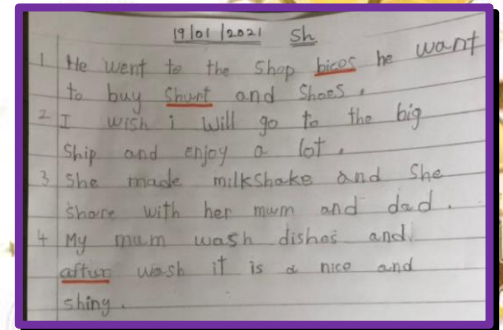 19/01/2021 Sh
1 He went to the shop bicos he want
to buy Shurt and Shoes.
2 I wish i will go to the big
Ship and enjoy a lot.
3 She made milkshake and She
Share with her mum and dad.
4 My mum wash dishes and
aftur wash it is a nice and
shiny.